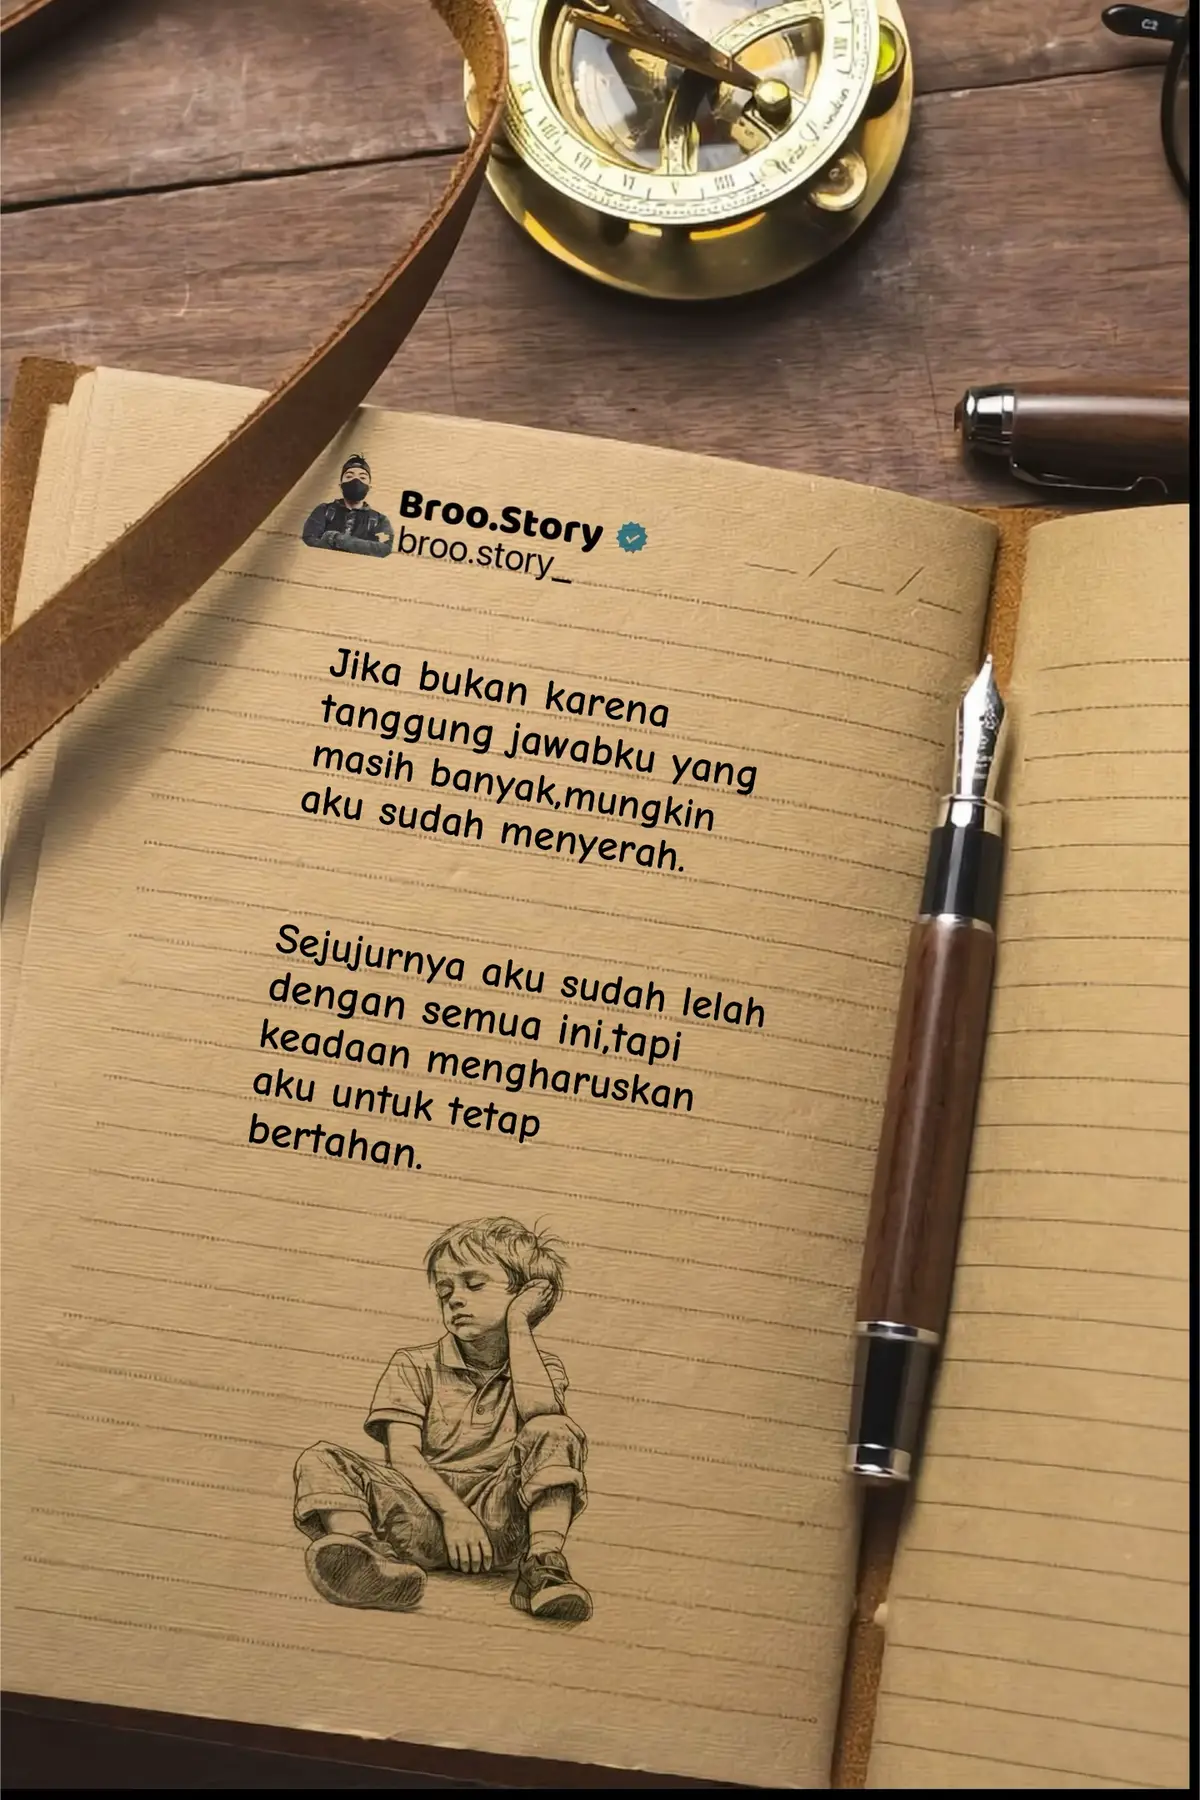 Broo.Story
broo.story_
Jika bukan karena
tanggung jawabku yang
masih banyak,mungkin
aku sudah menyerah.
Sejujurnya aku sudah lelah
dengan semua ini,tapi
keadaan mengharuskan
aku untuk tetap
bertahan.